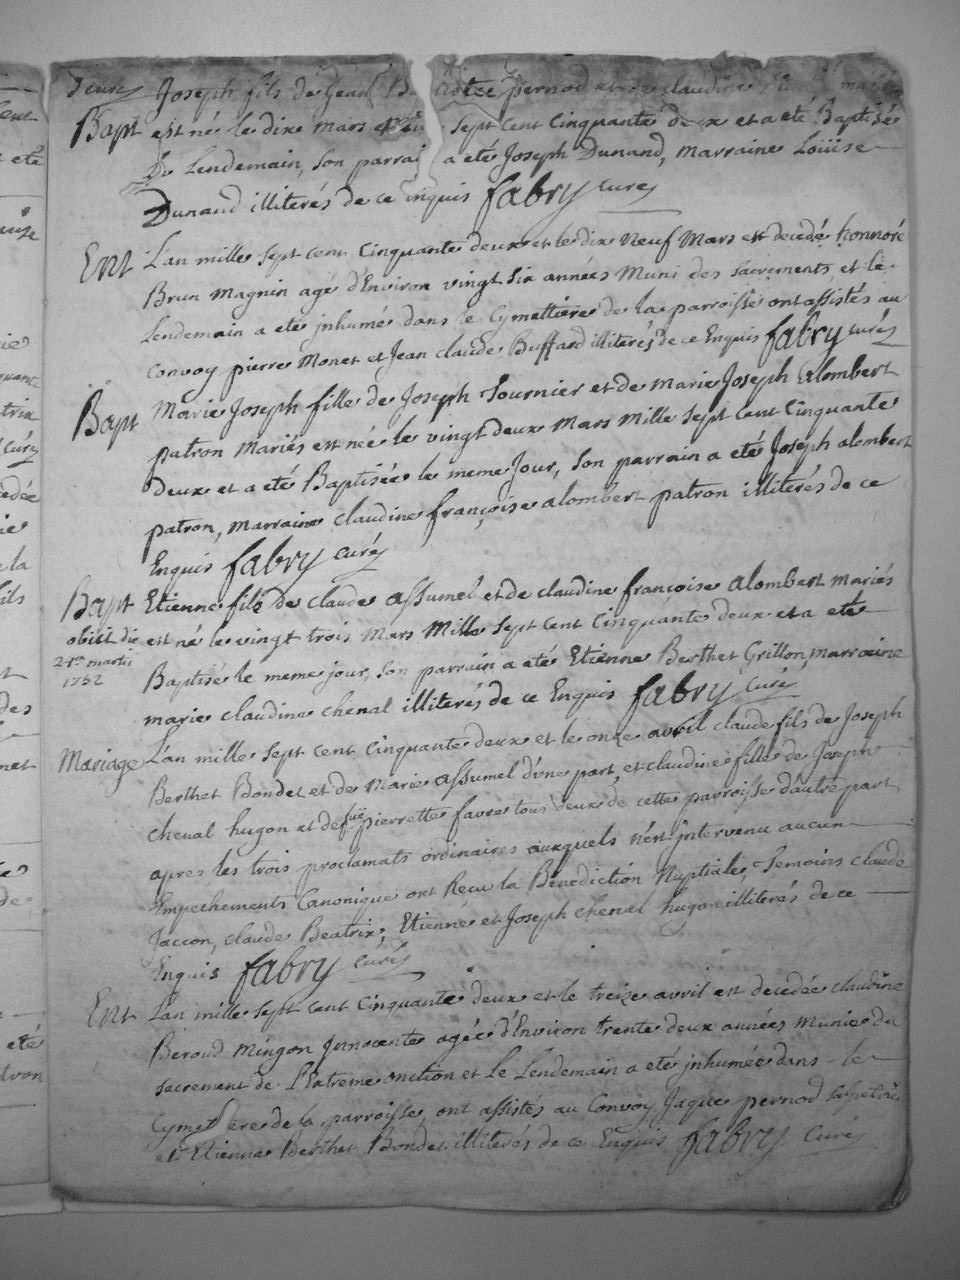 deux Joseph fils de Jean Ba pernod et de claudine
Bapt est né le dix mars sept cent Cinquante deux et a eté Baptisé
Le Lendemain, son parrai a eté Joseph Dunand, Marraine Loüise
Dunand illiterés de ce inquis fabry curé
Ent L'an mille sept cent Cinquante deux et le dix Neuf Mars est decedé honnoré
Brun Magnin agé d'Environ vingt six années Muni des sacrements et le
Lendemain a eté jnhumé dans le Cymettiere de La parroisse ont assistés au
Convoy pierre Monet et Jean claude Buffard illiterés de ce Enquis fabry curé
Bapt Marie Joseph fille de Joseph Tournier et de Marie Joseph alombert
patron Mariés est née le vingt deux Mars Mille sept cent Cinquante
deux et a eté Baptisée le meme Jour, son parrain a eté Joseph alombert
patron, Marraine claudine françoise alombert patron illiterés de ce
Enquis fabry curé
Bapt Etienne fils de claude assumel et de claudine françoise alombert mariés
obiit die est né le vingt trois Mars Mille sept cent Cinquante deux et a eté
24a martii Baptisé le meme jour, son parrain a eté Etienne Berthet Grillon, marraine
1752 marie claudine chenal illiterés de ce Enquis fabry curé
Mariage L'an mille sept cent cinquante deux et le onze avril claude fils de Joseph
Berthet Bondet et de Marie assumel d'une part, et claudine fille de Joseph
chenal hugon et de fuë pierrette favre tous deux de cette parroisse d'autre part
apres les trois proclamats ordinaires auxquels n'est jntervenu aucun
Empechements Canonique ont Recu la Benediction Nuptiale, Temoins claude
Jaccon, claude Beatrix, Etienne et Joseph chenal hugon illiterés de ce
Enquis fabry curé
Ent L'an mille sept cent Cinquante deux et le treize avril est decedée claudine
Beroud Mingon Jnnocente agée d'Environ trente deux années Munie du
sacrement de L'Extreme onction et Le Lendemain a eté jnhumée dans le
Cymettiere de la parroisse, ont assistés au Convoy Jaque pernod
et Etienne Berthet Bondet illiterés de ce Enquis fabry curé